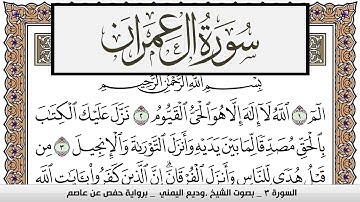 سُورَةُ آلِ عِمْرَان
بِسْمِ اللَّهِ الرَّحْمَٰنِ الرَّحِيمِ
الٓمٓ ١ اللَّهُ لَا إِلَٰهَ إِلَّا هُوَ الْحَيُّ الْقَيُّومُ ٢ نَزَّلَ عَلَيْكَ الْكِتَابَ
بِالْحَقِّ مُصَدِّقًا لِّمَا بَيْنَ يَدَيْهِ وَأَنزَلَ التَّوْرَىٰةَ وَالْإِنجِيلَ ٣ مِن
قَبْلُ هُدًى لِّلنَّاسِ وَأَنزَلَ الْفُرْقَانَ إِنَّ الَّذِينَ كَفَرُوا بِـَٔايَٰتِ اللَّهِ
السورة ٣ _ بصوت الشيخ .وديع اليمني _ برواية حفص عن عاصم